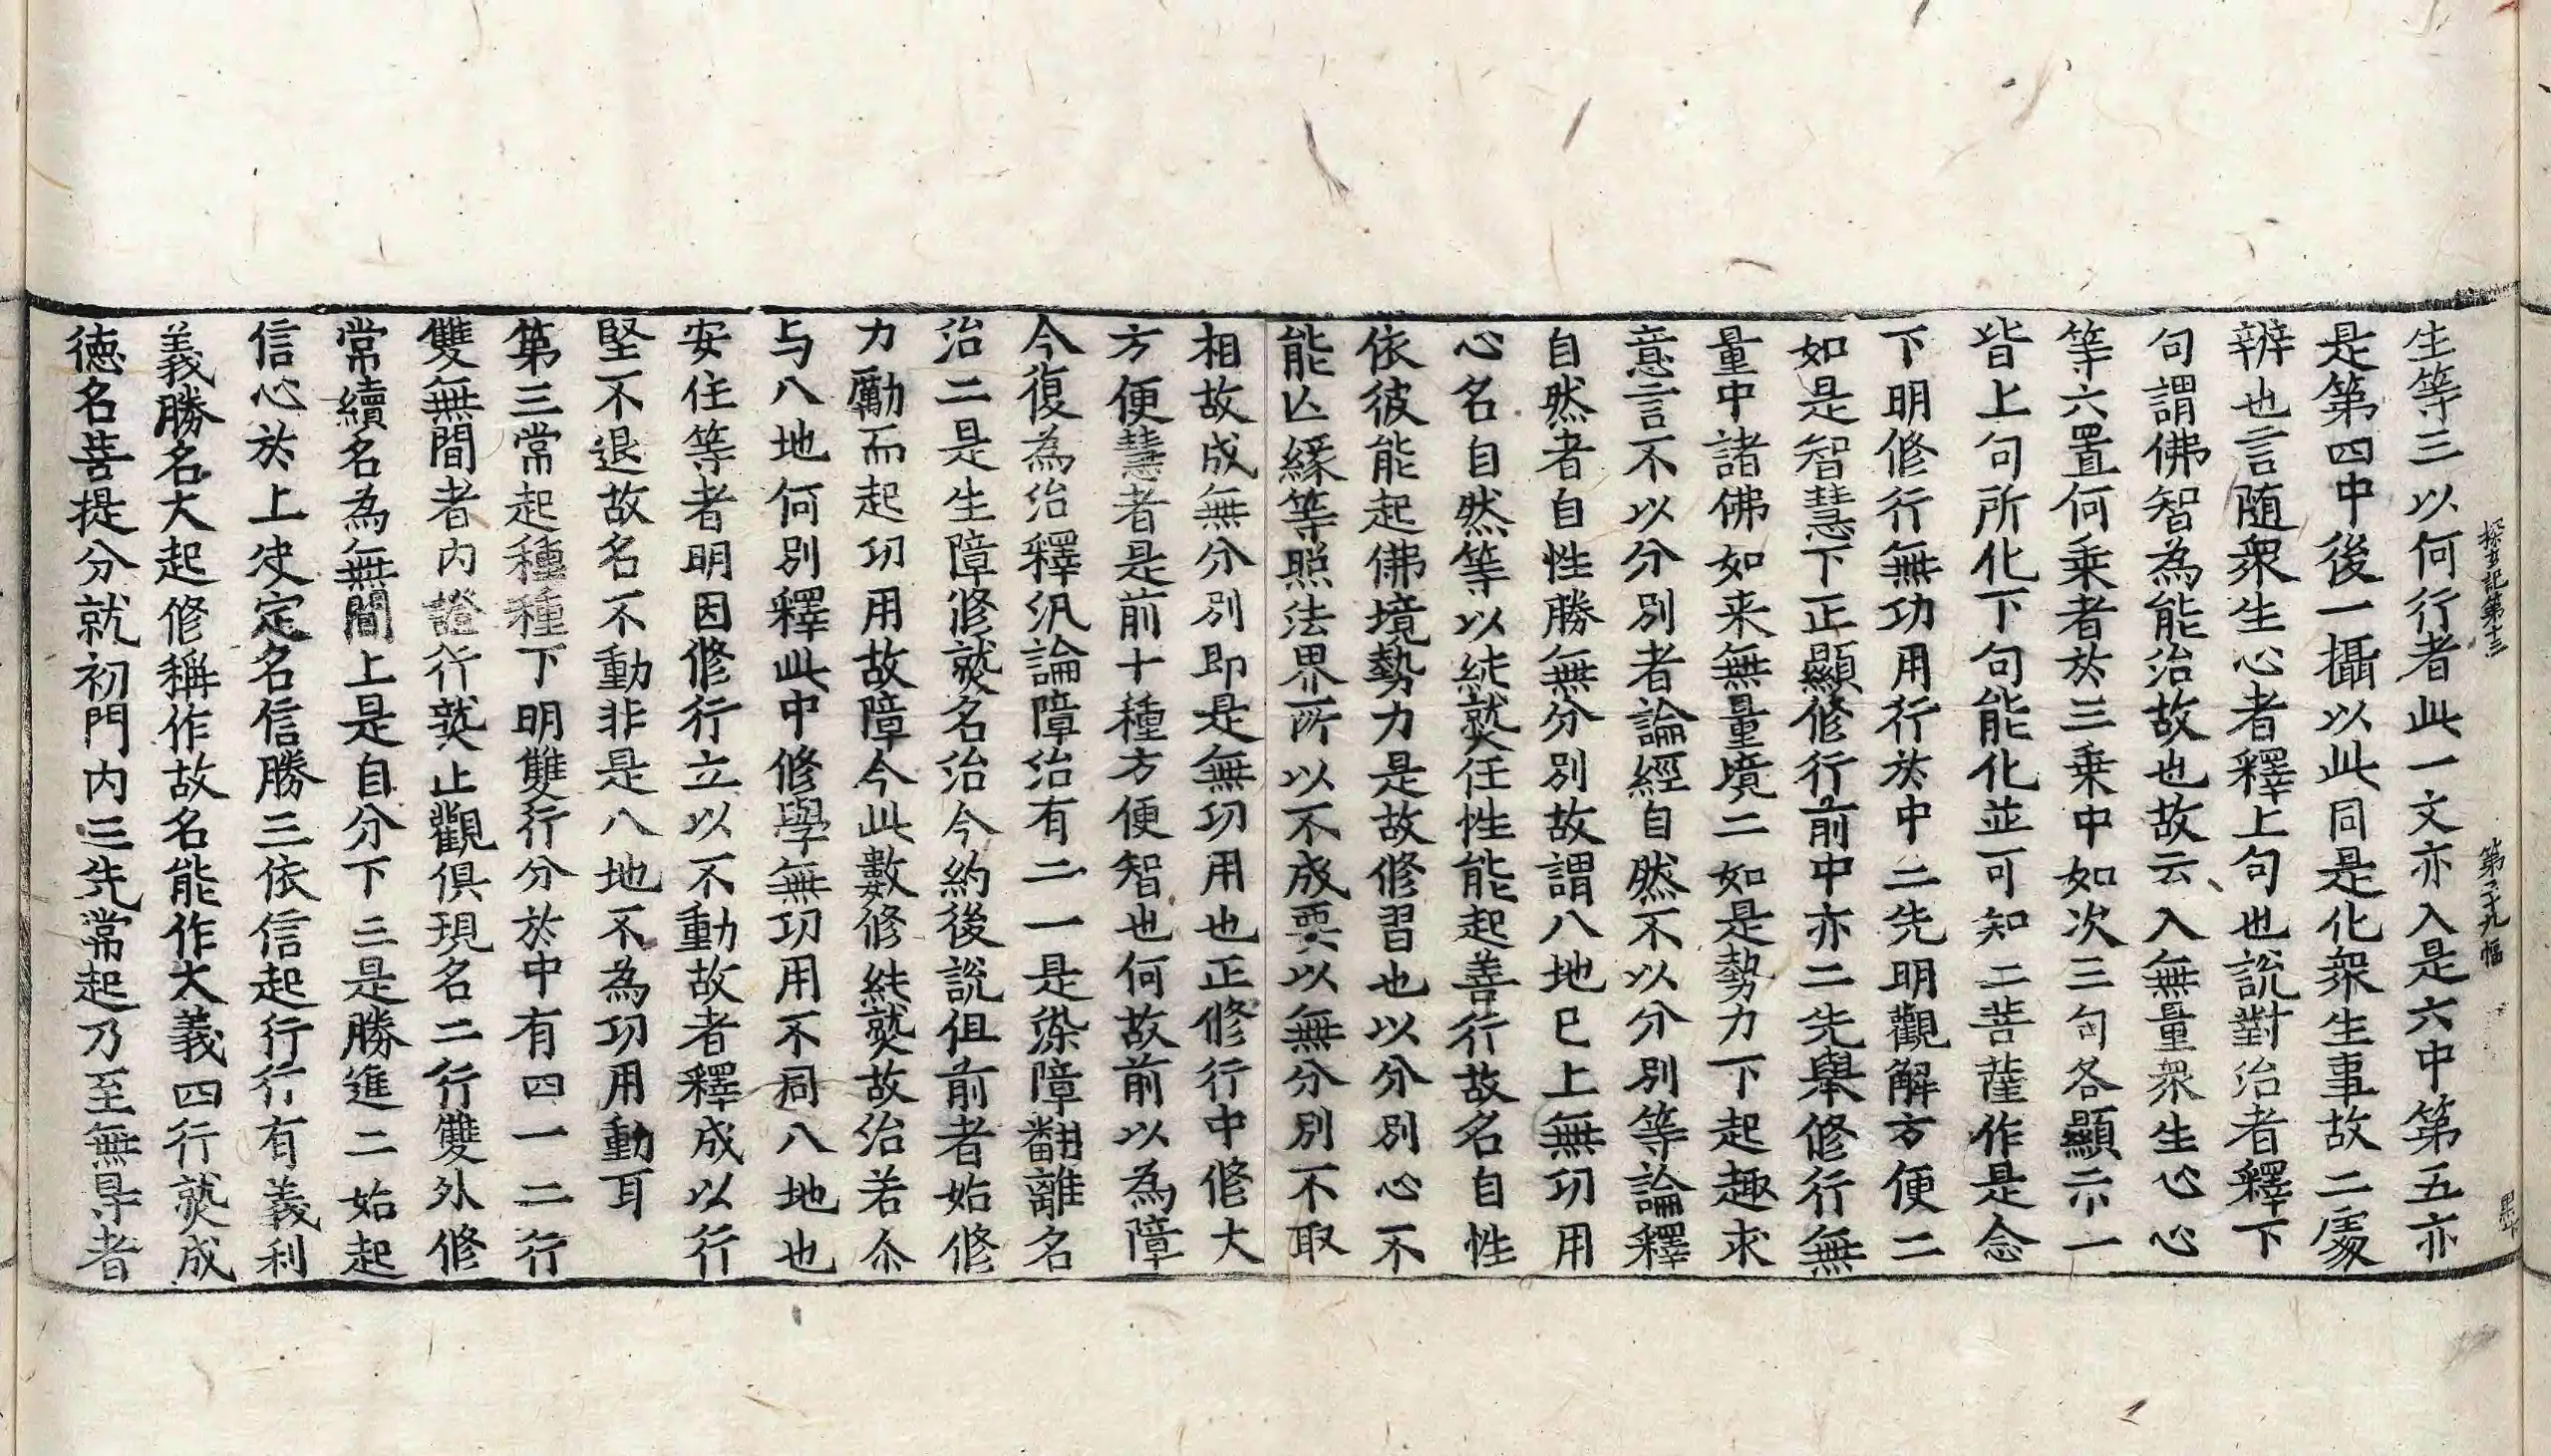 探玄記第十三　第二十九幅
生等三以何行者此一文亦入是六中第五亦
是第四中後一攝以此同是化衆生事故二處
辨也言随衆生心者釋上句也說對治者釋下
句謂佛智為能治故也故云入無量衆生心心
等六置何乗者於三乗中如次三句各顯示一
皆上句所化下句能化並可知二菩薩作是念
下明修行無功用行於中二先明觀解方便二
如是智慧下正顯修行前中亦二先舉修行無
量中諸佛如来無量境二如是勢力下起趣求
意言不以分別者論經自然不以分別等論釋
自然者自性勝無分別故謂八地已上無功用
心名自然等以純熟任性能起善行故名自性
依彼能起佛境勢力是故修習也以分別心不
能亾緣等照法界所以不成要以無分別不取
相故成無分別即是無功用也正修行中修大
方便慧者是前十種方便智也何故前以為障
今復為治釋汎論障治有二一是染障翻離名
治二是生障修熟名治今約後說伹前者始修
力勵而起功用故障今此數修純熟故治若尒
与八地何別釋此中修學無功用不同八地也
安住等者明因修行立以不動故者釋成以行
堅不退故名不動非是八地不為功用動耳
第三常起種種下明雙行分於中有四一二行
雙無間者内證行熟止觀俱現名二行雙外修
常續名為無間上是自分下三是勝進二始起
信心於上决定名信勝三依信起行行有義利
義勝名大起修稱作故名能作大義四行熟成
徳名菩提分就初門内三先常起乃至無㝵者